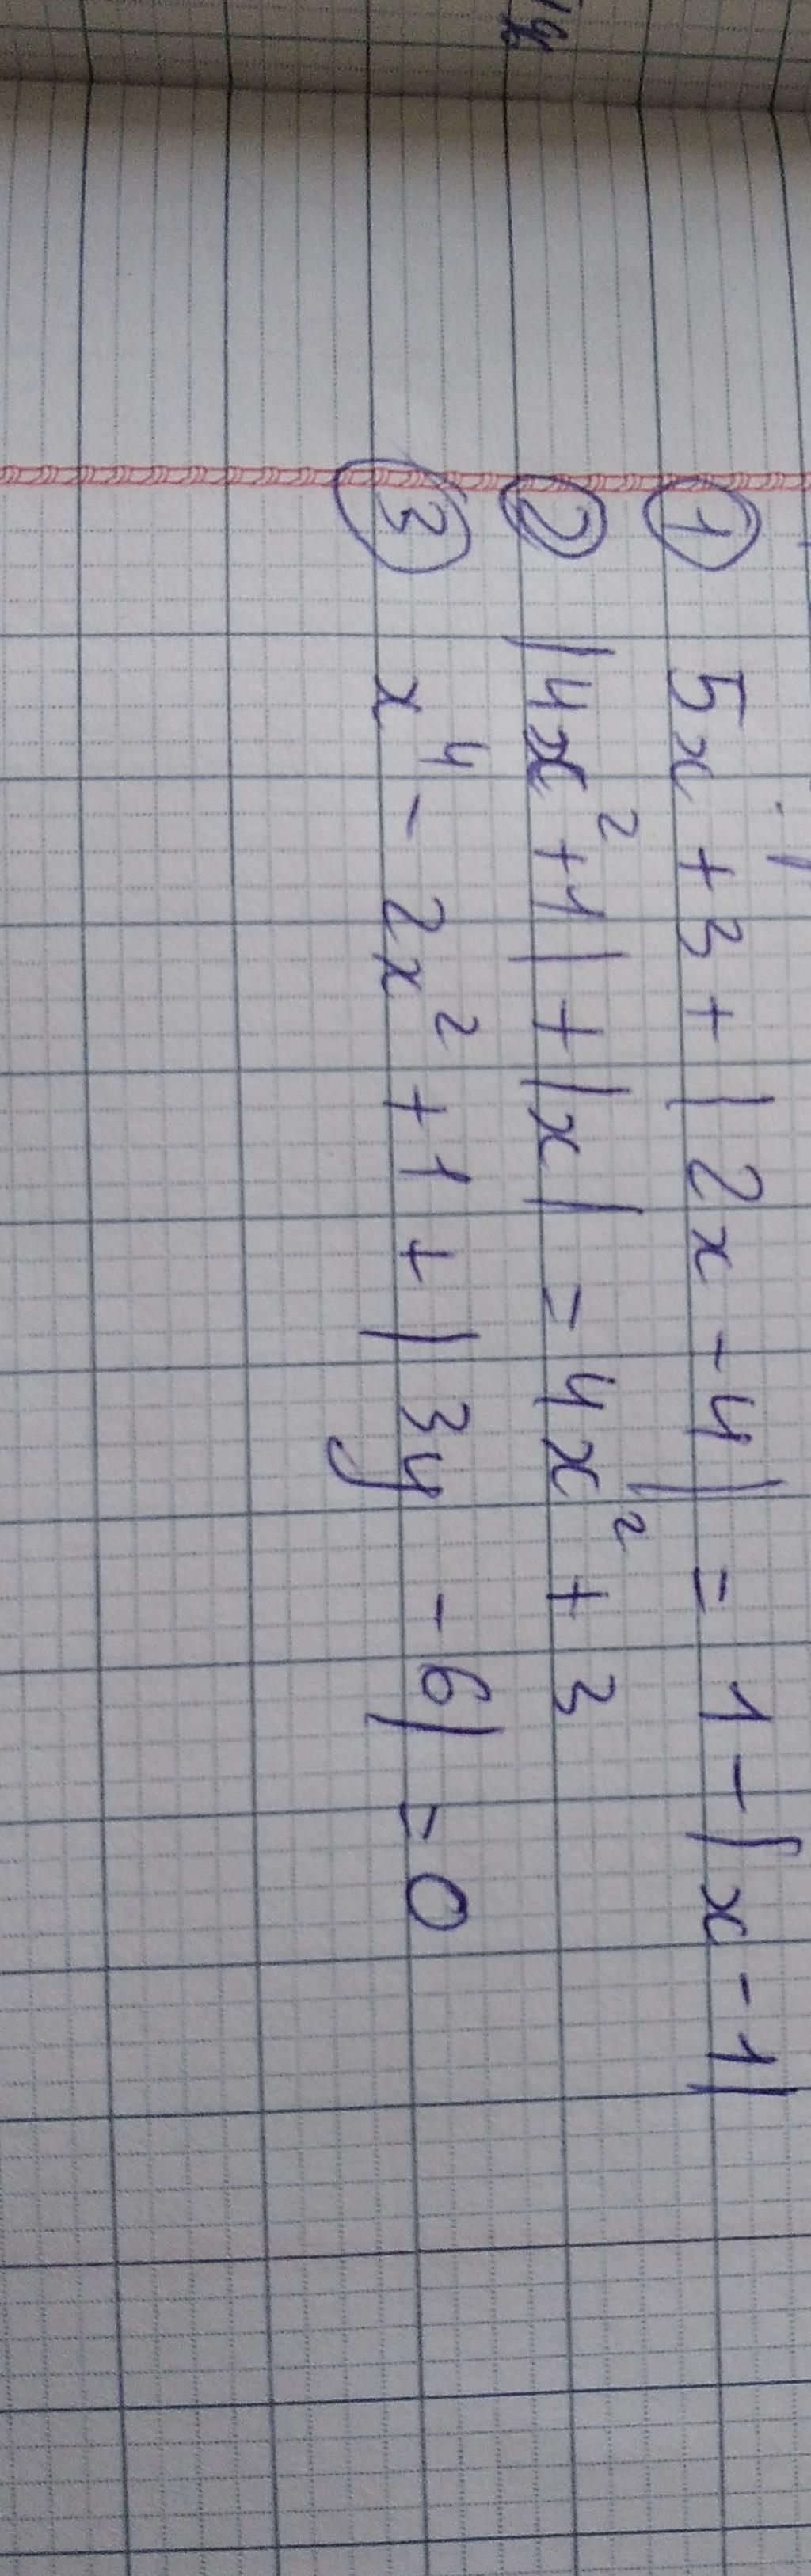 ① 5x + 3 + |2x - 4| = 1 - |x - 1|
② |4x² + 1| + |x| = 4x² + 3
③ x⁴ - 2x² + 1 + |3y - 6| = 0